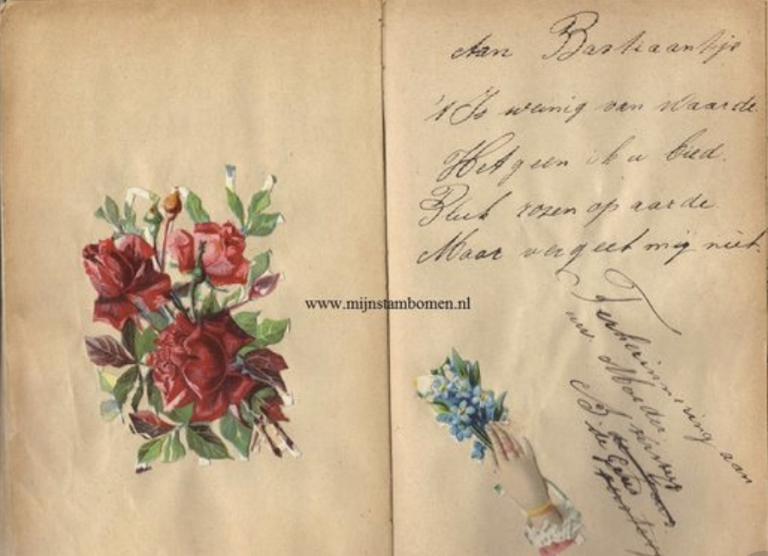 Aan Bastiaantje
't Is weinig van waarde
Hetgeen ik u bied.
Pluk rozen op aarde
Maar vergeet mij niet.
www.mijnstambomen.nl
Terherinnering aan
uw Moeder